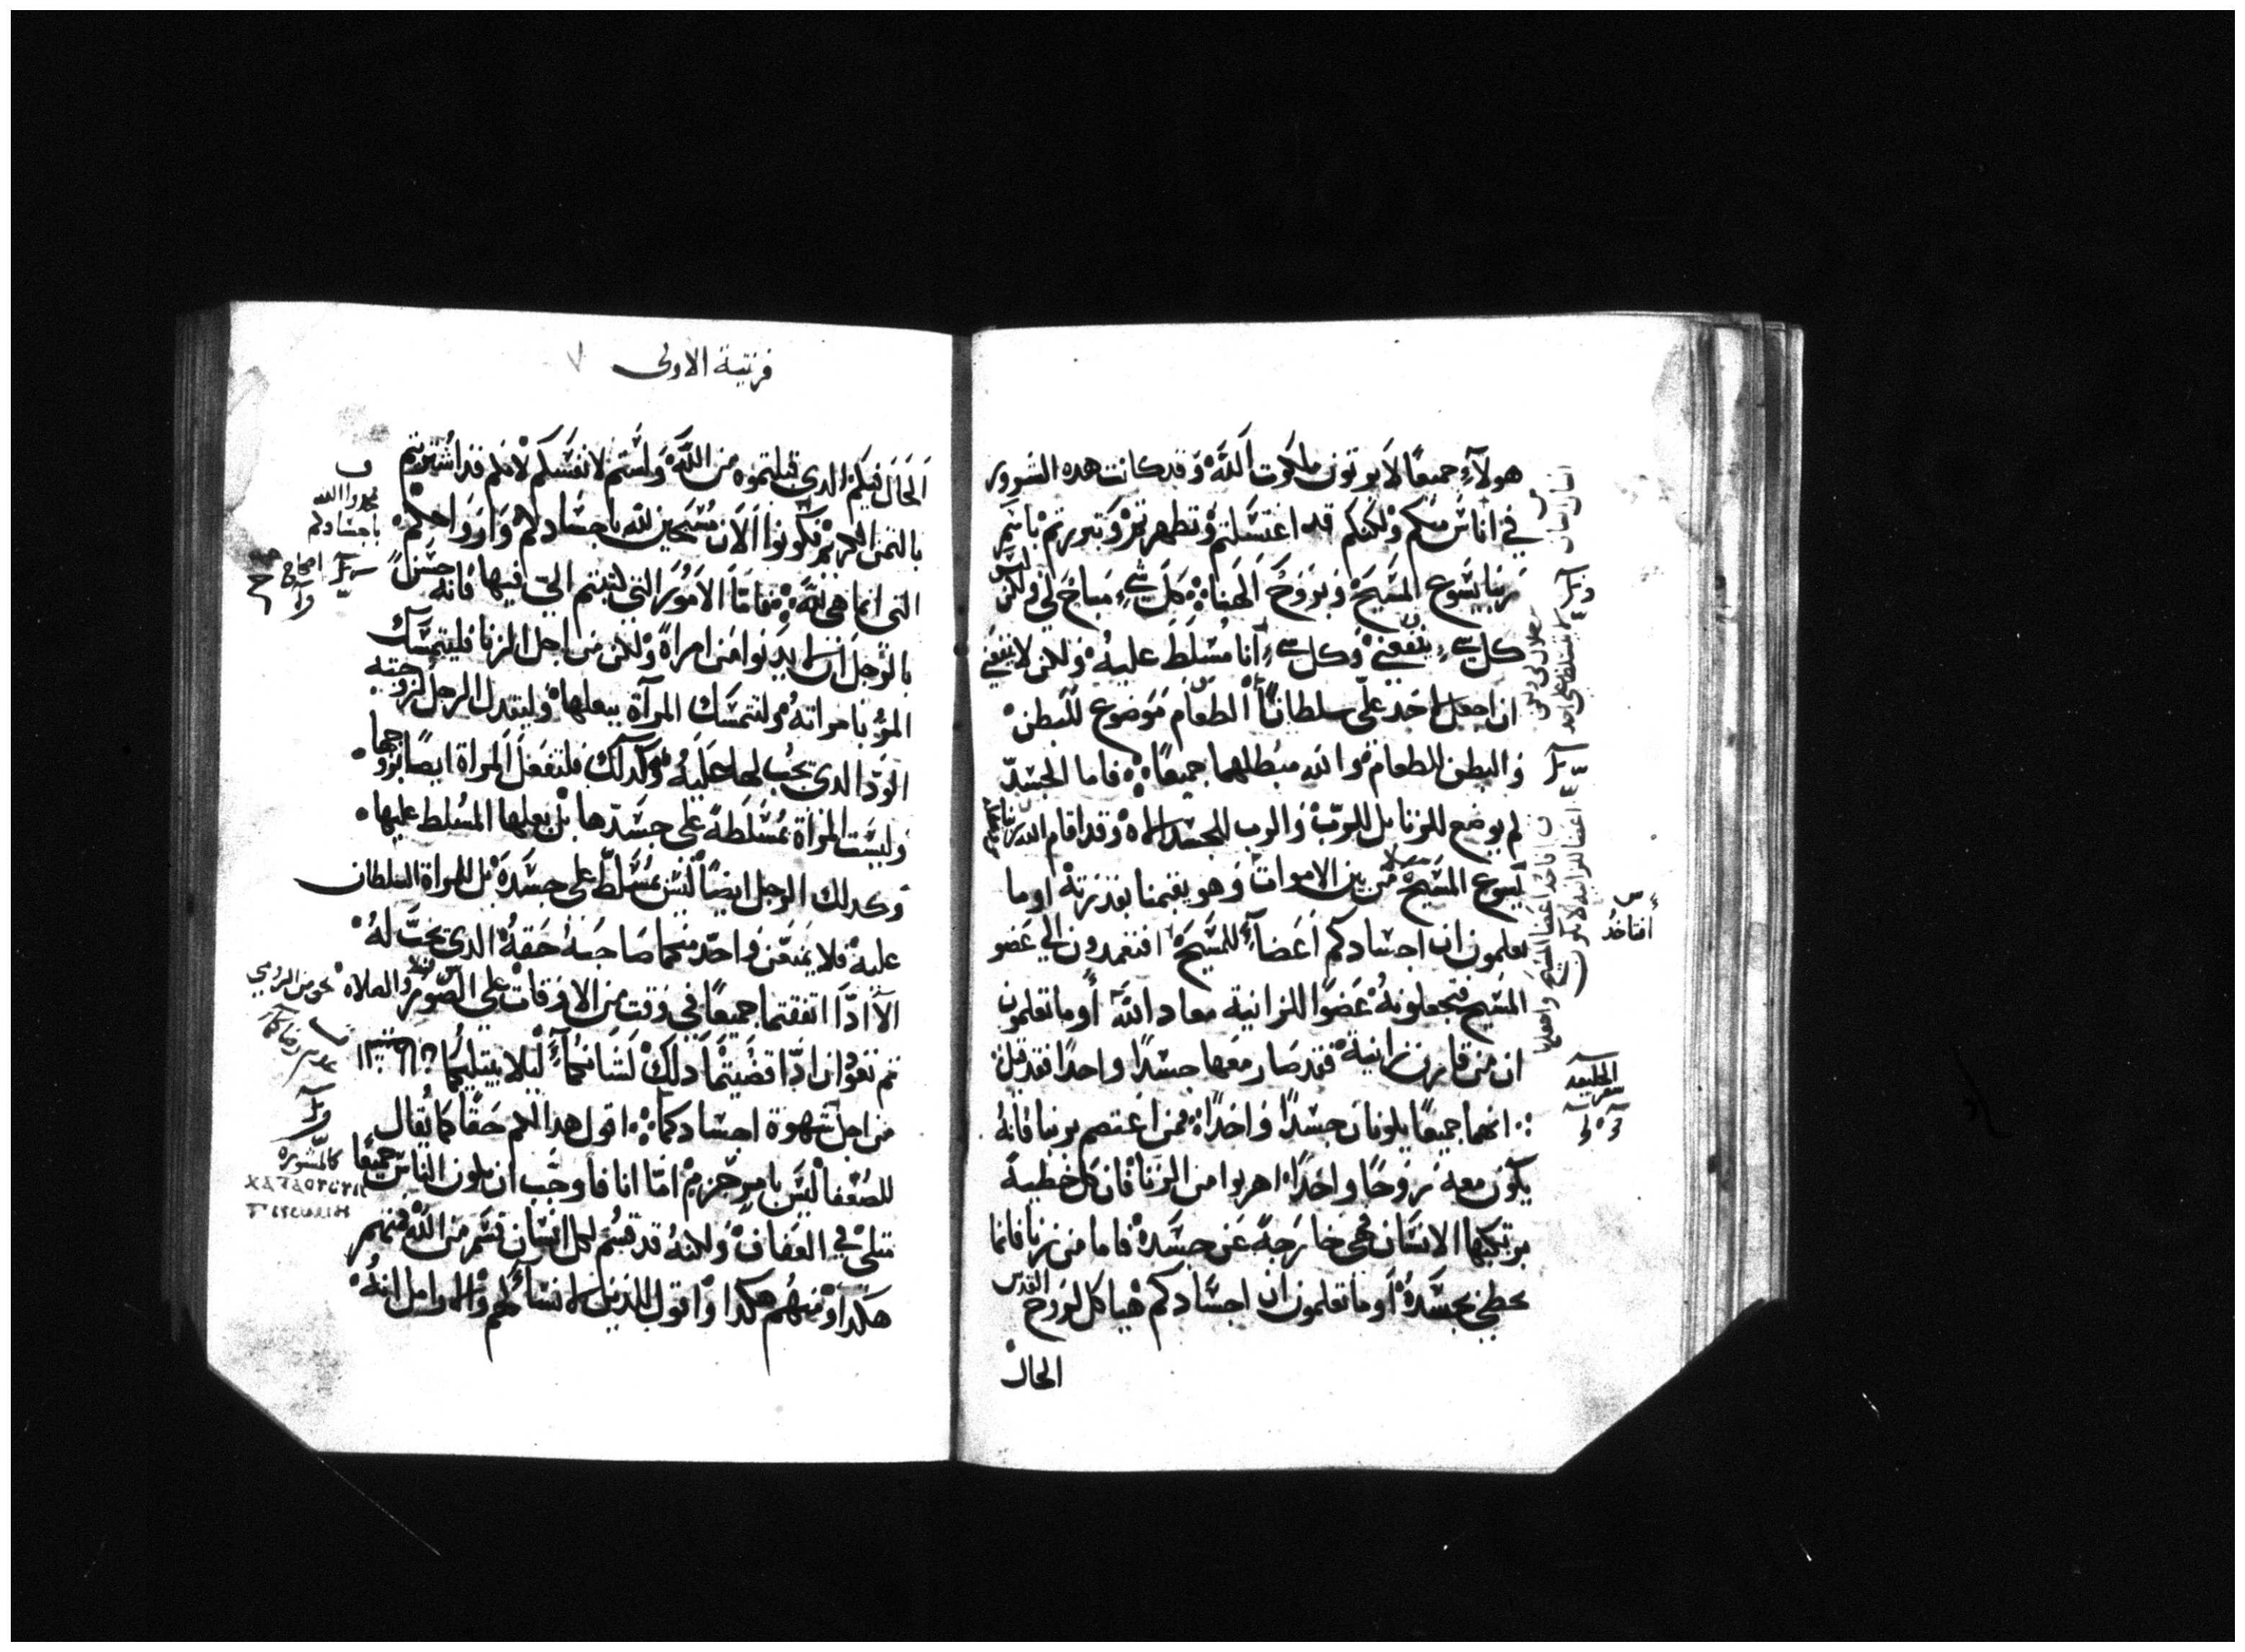 هولآء جميعًا لا يرتون ملكوت الله وقد كانت هذه الشرور
في اناس منكم ولكنكم قد اغتسلتم وتطهرتم وتبررتم باسم
ربنا يسوع المسيح وبروح الهنا كل شيء مباح لي ولكن ليس
كل شيء ينفعني وكل شيء انا مسلط عليه ولكن لا ينبغي
ان اجعل لاحد علي سلطانًا الطعام موضوع للبطن
والبطن للطعام والله مبطلهما جميعًا فاما الجسد
لم يوضع للزنا بل للرب والرب للجسد وقد اقام الله ربنا
يسوع المسيح من بين الاموات وهو يقيمنا بقدرته اوما
تعلمون ان اجسادكم اعضآء للمسيح افتعمدون الي عضو
المسيح فتجعلونه عضوًا للزانية معاد الله أوما تعلمون
ان من قارن زانية فقد صار معها جسدًا واحدًا فقد قيل
انهما جميعًا يكونان جسدًا واحدًا فمن اعتصم بربنا فانه
يكون معه روحًا واحدًا اهربوا من الزنا فان كل خطية
يرتكبها الانسان فهي خارجة عن جسده فاما من زنا فانما
يخطي بجسده أوما تعلمون ان اجسادكم هياكل لروح القدس
الحال
أفتاخد
الخليقه
سفر
قرنتية الاولى
الحال فيكم الذي قبلتموه من الله ولستم لانفسكم لانكم قد اشتريتم
بالتمن الكريم فكونوا الان مسبحين لله باجسادكم وارواحكم
التي انما هي لله فاما الامور التي كتبتم الي فيها فانه حسن
بالرجل ان لا يدنوا من امراة ولكن من اجل الزنا فليتمسك
المرؤ بامراته ولتتمسك المرآة ببعلها وليبدل الرجل لزوجته
الود الذي يجب لها عليه وكذلك فلتفعل المراة ايضًا بزوجها
وليست المراة مسلطة على جسدها بل بعلها المسلط عليها
وكدلك الرجل ايضًا ليس مسلط على جسده بل المراة السلطان
عليه فلا يمنعن واحد منكما صاحبه حقه الذي يجب له
الا ادا اتفقتما جميعًا في وقت من الاوقات على الصوم والصلاه
تم تعودان ادا قضيتما دلك لشانكما ليلا يبتليكما
من اجل شهوة اجسادكما اقول هدا لكم حقًا كما يقال
للضعفا ليس بامر جزم امّا انا فاوجب ان يكون الناس جميعًا
متلي في العفاف ولكنه قد قسم لكل انسان قسم من الله فمنهم
هكدا ومنهم هكدا واقول للذين لا نسآء لهم والارامل انه
مجدوا الله
باجسادكم